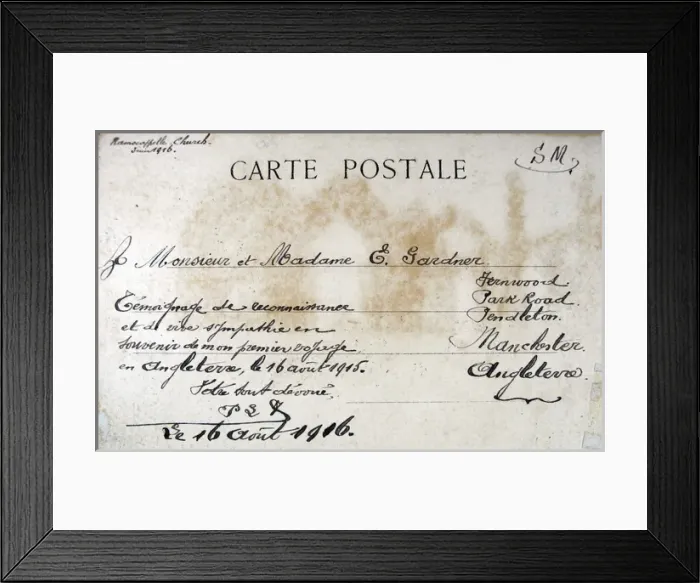 Ramscappelle Church.
June 1916.
S M.
CARTE POSTALE
Monsieur et Madame E. Gardner
Fernwood
Park Road.
Pendleton.
Manchester.
Angleterre.
Témoignage de reconnaissance
et de vive sympathie en
souvenir de mon premier voyage
en Angleterre, le 16 août 1915.
Votre tout dévoué,
Le 16 Août 1916.